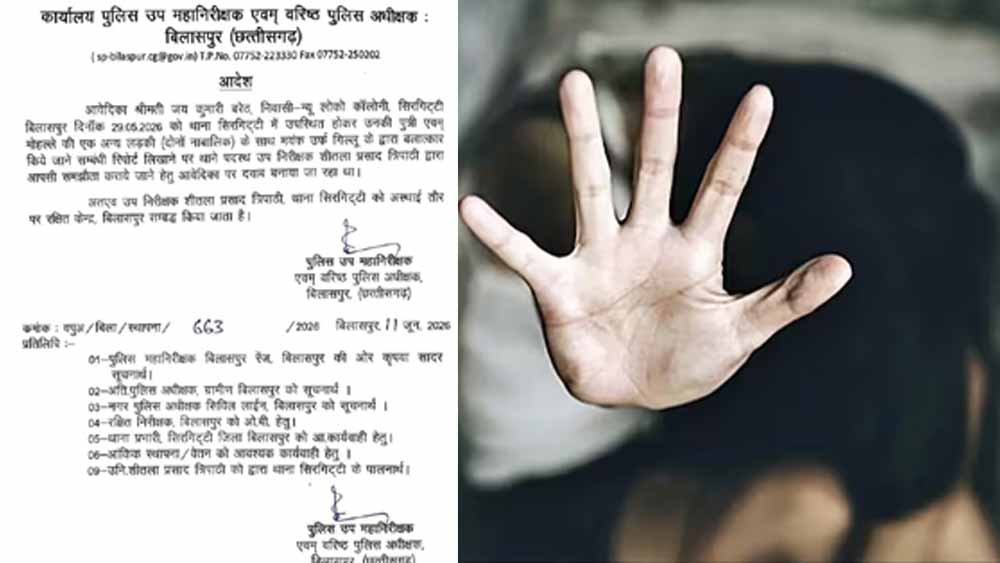 कार्यालय पुलिस उप महानिरीक्षक एवम् वरिष्ठ पुलिस अधीक्षक :
बिलासपुर (छत्तीसगढ़)
( sp-bilaspur.cg@gov.in) T.P.No. 07752-223330 Fax 07752-250202
आदेश
आवेदिका श्रीमती जय कुमारी बरेठ, निवासी-न्यू लोको कॉलोनी, सिरगिट्टी
बिलासपुर दिनॉक 29.05.2026 को थाना सिरगिट्टी में उपस्थित होकर उनकी पुत्री एवम्
मोहल्ले की एक अन्य लड़की (दोनों नाबालिक) के साथ मयंक उर्फ गिल्लू के द्वारा बलात्कार
किये जाने सम्बंधी रिपोर्ट लिखाने पर थाने पदस्थ उप निरीक्षक शीतला प्रसाद त्रिपाठी द्वारा
आपसी समझौता कराये जाने हेतु आवेदिका पर दवाब बनाया जा रहा था।
अतएव उप निरीक्षक शीतला प्रसाद त्रिपाठी, थाना सिरगिट्टी को अस्थाई तौर
पर रक्षित केन्द्र, बिलासपुर सम्बद्ध किया जाता है।
पुलिस उप महानिरीक्षक
एवम् वरिष्ठ पुलिस अधीक्षक,
बिलासपुर, (छत्तीसगढ़)
क्रमांक : वपुअ/बिला/स्थापना/ 663 /2026 बिलासपुर, 11 जून, 2026
प्रतिलिपि :-
01-पुलिस महानिरीक्षक बिलासपुर रेंज, बिलासपुर की ओर कृपया सादर
सूचनार्थ।
02-अति.पुलिस अधीक्षक, ग्रामीन बिलासपुर को सूचनार्थ ।
03-नगर पुलिस अधीक्षक सिविल लाईन, बिलासपुर को सूचनार्थ ।
04-रक्षित निरीक्षक, बिलासपुर को ओ.बी. हेतु।
05-थाना प्रभारी, सिरगिट्टी जिला बिलासपुर को आ.कार्यवाही हेतु।
06-आंकिक स्थापना/वेतन को आवश्यक कार्यवाही हेतु ।
09-उनि.शीतला प्रसाद त्रिपाठी को द्वारा थाना सिरगिट्टी के पालनार्थ।
पुलिस उप महानिरीक्षक
एवम् वरिष्ठ पुलिस अधीक्षक,
बिलासपुर (छत्तीसगढ़)